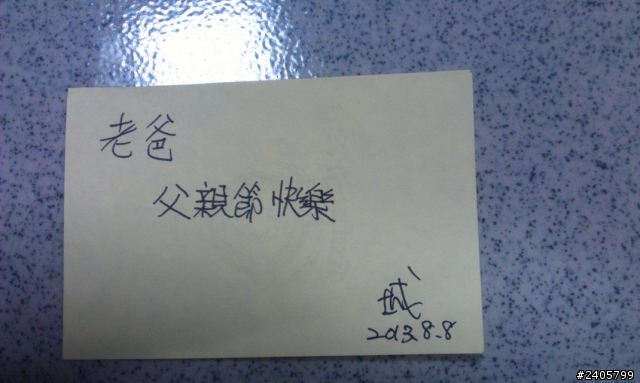 老爸
父親節快樂
城
2013.8.8
#2405799